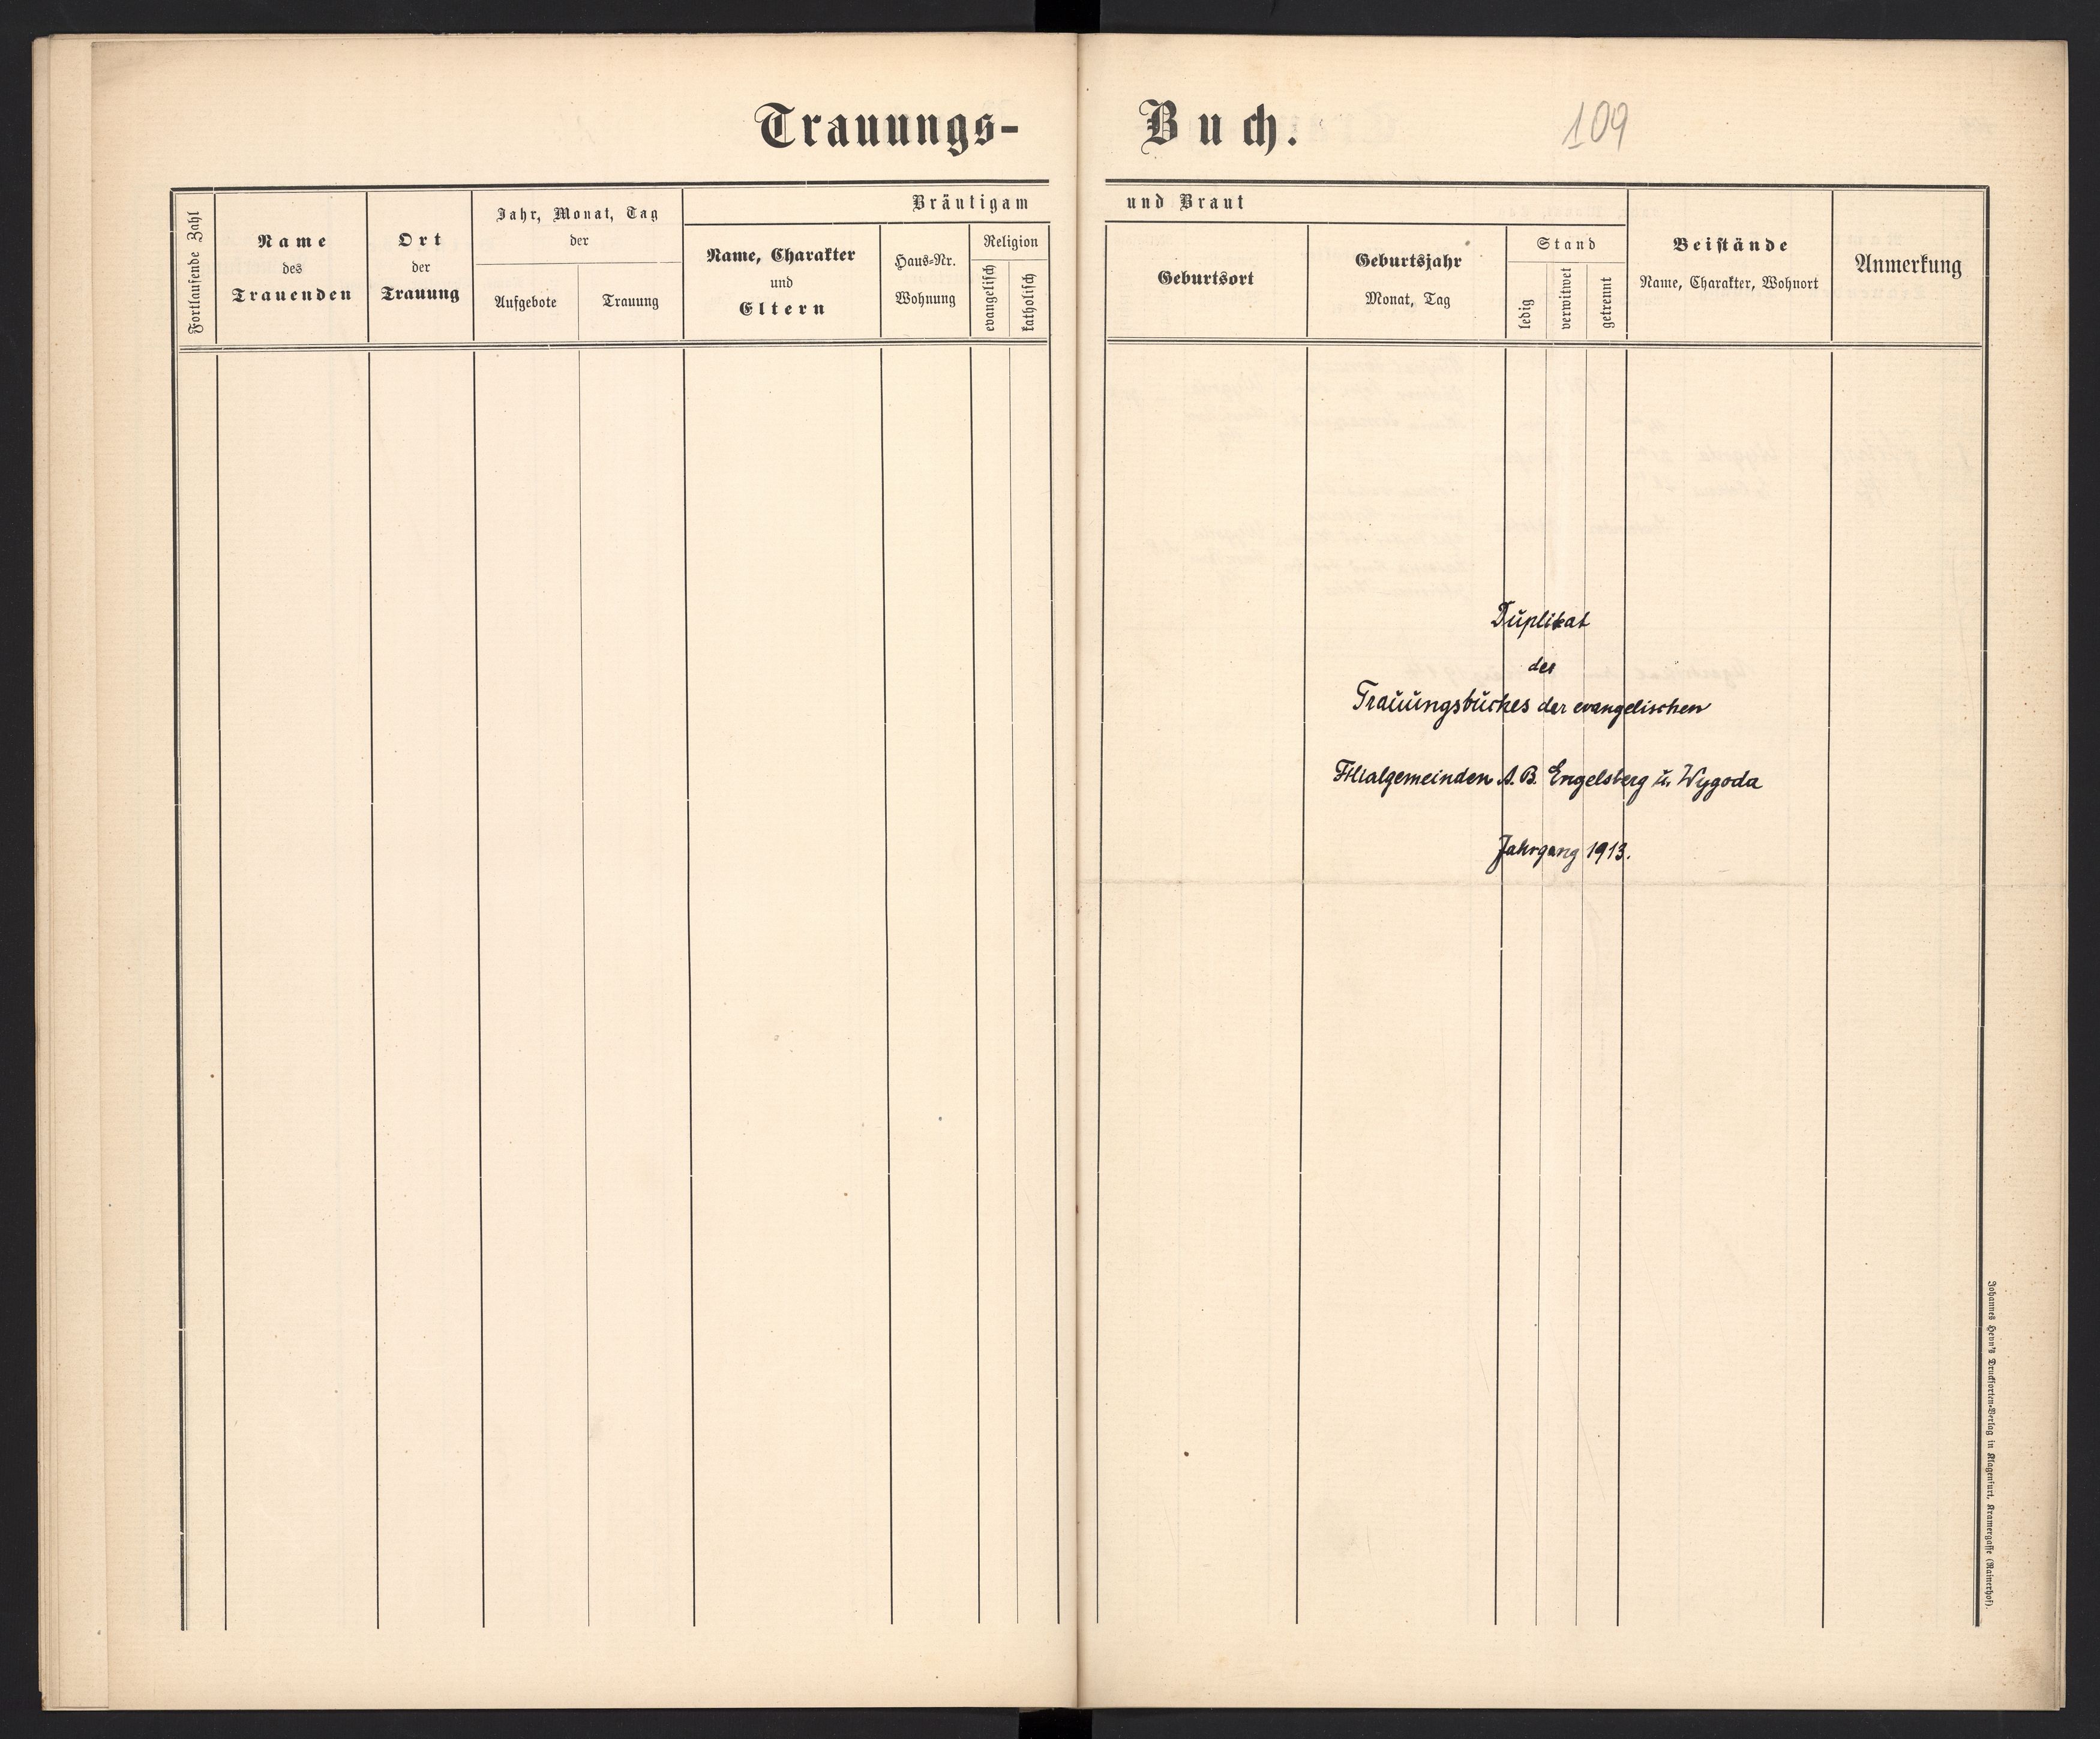 Trauungs-Buch.
109
Fortlaufende Zahl
Name
des
Trauenden
Ort
der
Trauung
Jahr, Monat, Tag
der
Aufgebote
Trauung
Bräutigam und Braut
Name, Charakter
und
Eltern
Haus-Nr.
Wohnung
Religion
evangelisch
katholisch
Geburtsort
Geburtsjahr
Monat, Tag
Stand
ledig
verwitwet
getrennt
Beistände
Name, Charakter, Wohnort
Anmerkung
Duplikat
des
Trauungsbuches der evangelischen
Filialgemeinden A. B. Engelsberg u. Wygoda
Jahrgang 1913.
Johannes Heyn's Drucksorten-Verlag in Klagenfurt, Kramergasse (Rainerhof).